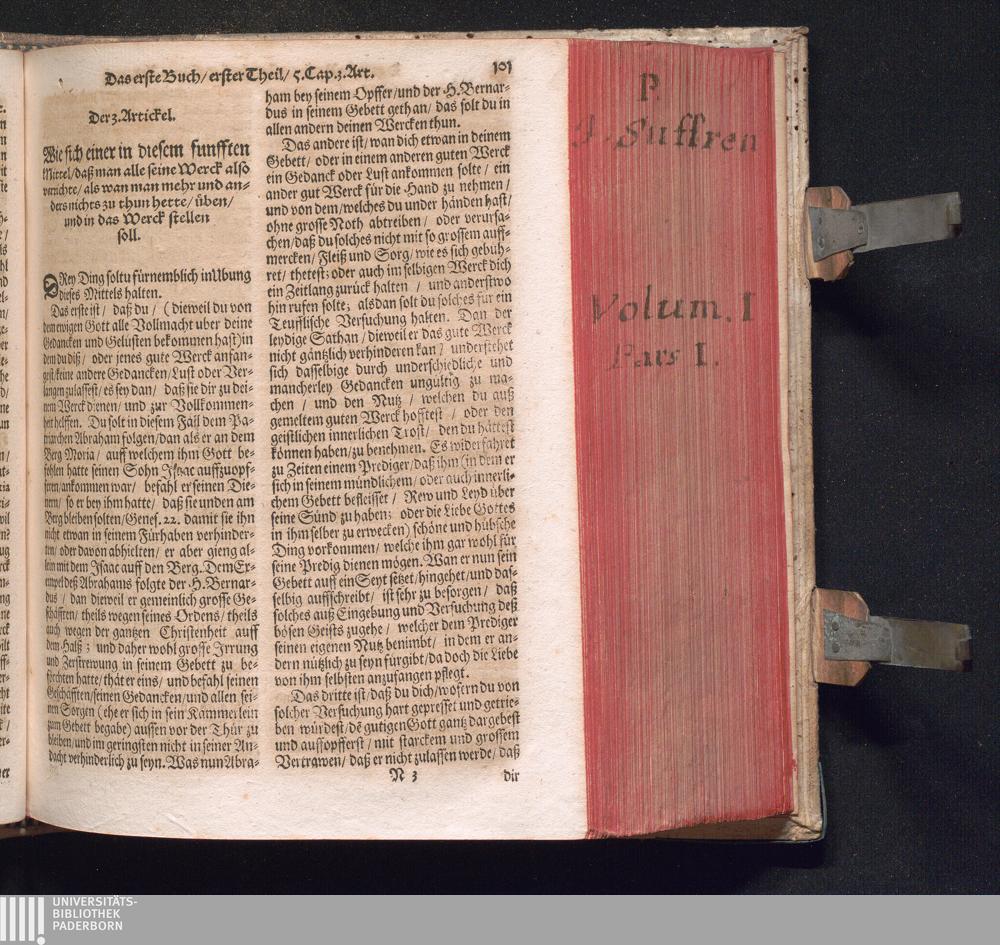 Das erste Buch / erster Theil / 5. Cap. 3. Art. 101
Der 3. Artickel.
Wie sich einer in diesem funfften
Mittel / daß man alle seine Werck also
verrichte / als wan man mehr und an-
ders nichts zu thun hette / üben /
und in das Werck stellen
soll.
DRey Ding soltu fürnemblich in Ubung
dieses Mittels halten.
Das erste ist / daß du / (dieweil du von
dem ewigen Gott alle Vollmacht uber deine
Gedancken und Gelüsten bekommen hast) in
dem du diß / oder jenes gute Werck anfan-
gest / keine andere Gedancken / Lust oder Ver-
langen zulassest / es sey dan / daß sie dir zu dei-
nem Werck dienen / und zur Vollkommen-
heit helffen. Du solt in diesem Fall dem Pa-
triarchen Abraham folgen / dan als er an dem
Berg Moria / auff welchem ihm Gott be-
fohlen hatte seinen Sohn Isaac auffzuopf-
feren / ankommen war / befahl er seinen Die-
nern / so er bey ihm hatte / daß sie unden am
Berg bleiben solten / Genes. 22. damit sie ihn
nicht etwan in seinem Fürhaben verhinder-
ten / oder davon abhielten / er aber gieng al-
lein mit dem Isaac auff den Berg. Dem Ex-
empel deß Abrahams folgte der H. Bernar-
dus / dan dieweil er gemeinlich grosse Ge-
schäfften / theils wegen seines Ordens / theils
auch wegen der gantzen Christenheit auff
dem Halß ; und daher wohl grosse Irrung
und Zerstrewung in seinem Gebett zu be-
förchten hatte / thät er eins / und befahl seinen
Geschäfften / seinen Gedancken / und allen sei-
nen Sorgen (ehe er sich in sein Kämmerlein
zum Gebett begabe) aussen vor der Thür zu
bleiben / und im geringsten nicht in seiner An-
dacht verhinderlich zu seyn. Was nun Abra-
ham bey seinem Opffer / und der H. Bernar-
dus in seinem Gebett gethan / das solt du in
allen andern deinen Wercken thun.
Das andere ist / wan dich etwan in deinem
Gebett / oder in einem anderen guten Werck
ein Gedanck oder Lust ankommen solte / ein
ander gut Werck für die Hand zu nehmen /
und von dem / welches du under händen hast /
ohne grosse Noth abtreiben / oder verursa-
chen / daß du solches nicht mit so grossem auff-
mercken / Fleiß und Sorg / wie es sich gebüh-
ret / thetest ; oder auch im selbigen Werck dich
ein Zeitlang zurück halten / und anderstwo
hin rufen solte ; alsdan solt du solches für ein
Teufflische Versuchung halten. Dan der
leydige Sathan / dieweil er das gute Werck
nicht gäntzlich verhinderen kan / understehet
sich dasselbige durch underschiedliche und
mancherley Gedancken ungültig zu ma-
chen / und den Nutz / welchen du auß
gemeltem guten Werck hofftest / oder den
geistlichen innerlichen Trost / den du hättest
können haben / zu benehmen. Es widerfahret
zu Zeiten einem Prediger / daß ihm (in dem er
sich in seinem mündlichem / oder auch innerli-
chem Gebett befleisset / Rew und Leyd über
seine Sünd zu haben ; oder die Liebe Gottes
in ihm selber zu erwecken) schöne und hübsche
Ding vorkommen / welche ihm gar wohl für
seine Predig dienen mögen. Wan er nun sein
Gebett auff ein Seyt setzet / hingehet / und das-
selbig auffschreibt / ist sehr zu besorgen / daß
solches auß Eingebung und Versuchung deß
bösen Geists zugehe / welcher dem Prediger
seinen eigenen Nutz benimbt / in dem er an-
dern nützlich zu seyn fürgibt / da doch die Liebe
von ihm selbsten anzufangen pflegt.
Das dritte ist / daß du dich / wofern du von
solcher Versuchung hart gepresset und getrie-
ben würdest / dē gutigen Gott gantz dargebest
und auffopfferst / mit starckem und grossem
Vertrawen / daß er nicht zulassen werde / daß
N 3 dir
P.
J. Suffren
Volum. I
Pars I.
UNIVERSITÄTS-
BIBLIOTHEK
PADERBORN